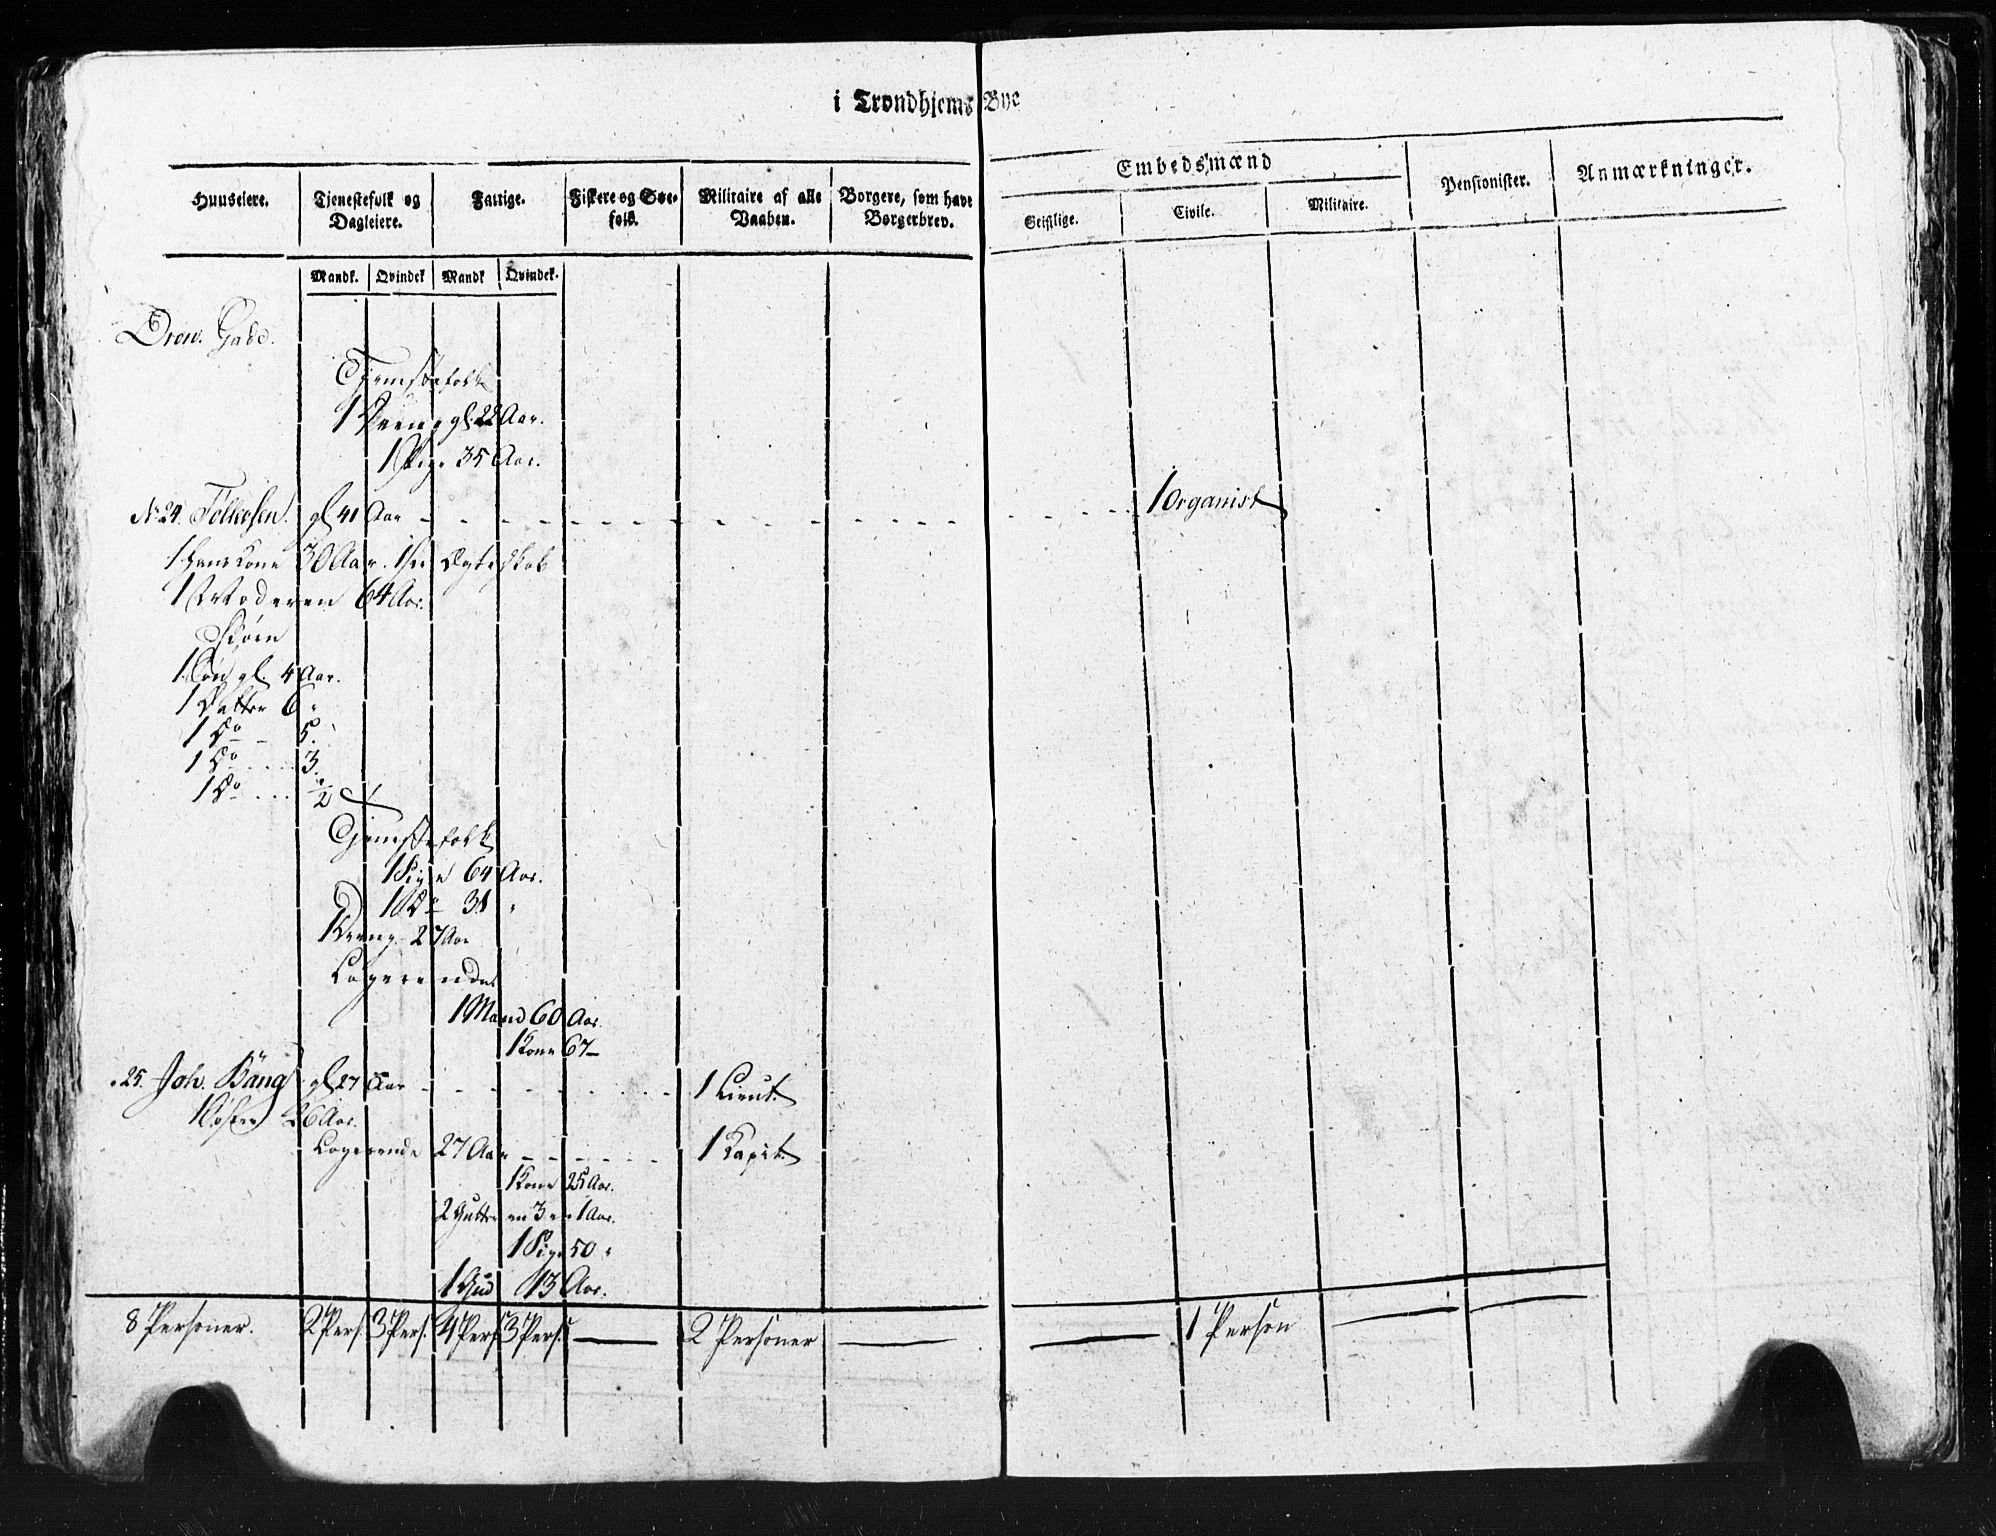 i Trondhjems Bye
Embedsmænd
Huuseiere. Tjenestefolk og Dagleiere. Fattige. Fiskere og Søe-folk. Militaire af alle Vaaben. Borgere, som have Borgerbrev. Geistlige. Civile. Militaire. Pensionister. Anmærkninger.
Mandk. Qvindek Mandk Qvindek.
Dron. Gade.
Tjenestefolk
1 Dreng gl. 22 Aar.
1 Pige 35 Aar.
No 24. Følkersen. gl 41 Aar - - - 1 Organist
1 Hans Kone 30 Aar. 1ste Ægteskab
1 Moderen 64 Aar.
Børn
1 Søn gl. 4 Aar.
1 Datter 6 "
1 Do - 5.
1 Do .... 3
1 Do .... 1/2
Tjenestefolk
1 Pige 64 Aar.
1 Do 31 "
1 Dreng 27 Aar
Logerende
1 Mand 60 Aar.
1 Kone 67 -
" 25. Joh. Bang gl 27 Aar - - - 1 Lieut.
1 Søster 26 Aar.
Logerende 27 Aar - - - 1 Kapit.
1 Kone 25 Aar.
2 Gutter en 3 en 1 Aar.
1 Pige 50 "
1 Gud 13 Aar.
8 Personer. 2 Pers. 3 Pers. 4 Pers. 3 Pers. — 2 Personer — — 1 Person — —